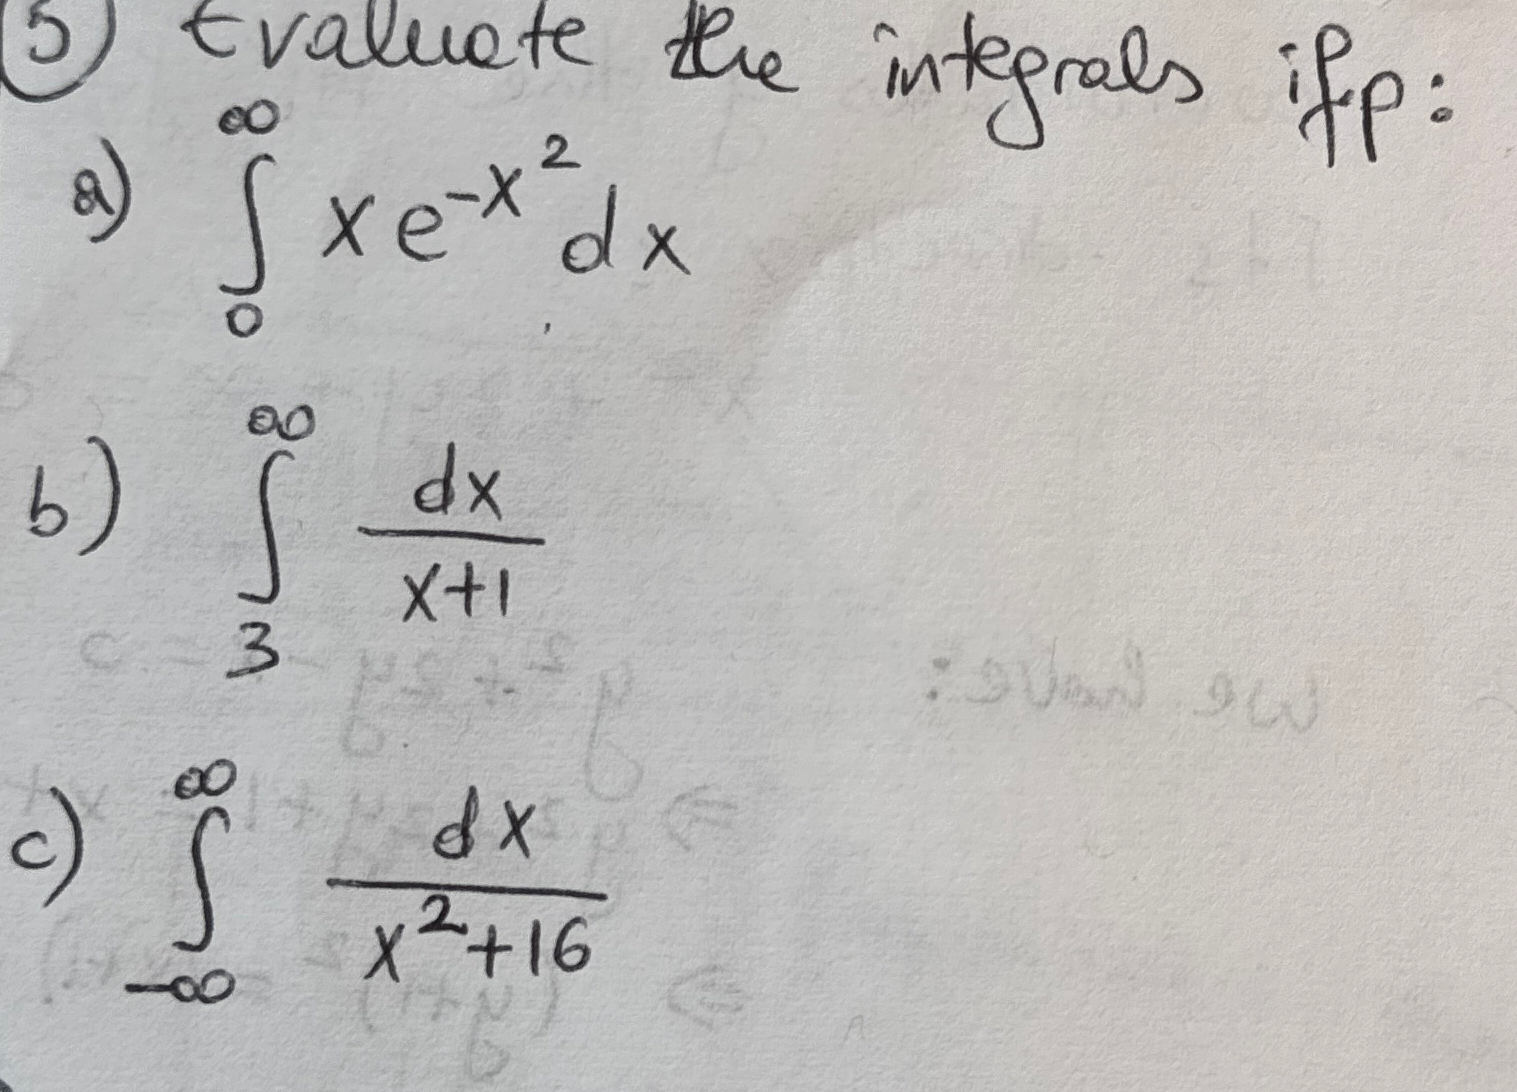 5) Evaluate the integrals if p:
a) ∫₀^∞ x e^{-x^2} dx
b) ∫₃^∞ dx/(x+1)
c) ∫_{-∞}^∞ dx/(x^2+16)